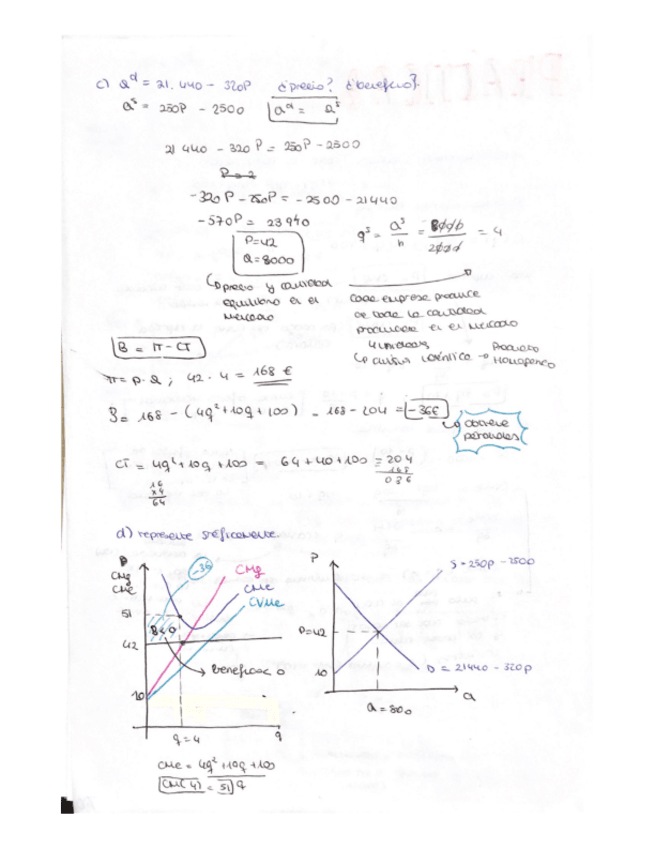 c) Qd = 21.440 - 320P ¿precio? ¿beneficio?
Qs = 250P - 2500 Qd = Qs
21 440 - 320 P = 250P - 2500
P = 2
-320P - 250P = -2500 - 21440
-570P = 23940
P=42
Q=8000
qs = Qs/n = 8000/2000 = 4
precio y cantidad
equilibrio en el
mercado
cada empresa produce
de toda la cantidad
producida en el mercado
4 unidades
curtus identica → Producto
Homogeneo
B = IT - CT
IT = P. Q ; 42 · 4 = 168 €
B = 168 - (4q² + 10q + 100) = 168 - 204 = -36€
obtiene
pérdidas
CT = 4q² + 10q + 100 = 64 + 40 + 100 = 204
168
036
16
x4
64
d) represente gráficamente.
P
CMg
CMe
51
42
10
-36
CMg
CMe
CVMe
B<0
beneficios 0
q = 4
q
CMe = 4q² + 10q + 100
q
CM(4) = 51
P
S = 250P - 2500
P=42
10
D = 21440 - 320P
Q
Q = 800